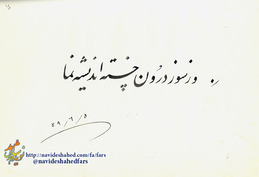 و ز سوز درون پخته اندیشه نما
۵۹/۶/۵
http://navideshahed.com/fa/fars
@navideshahedfars